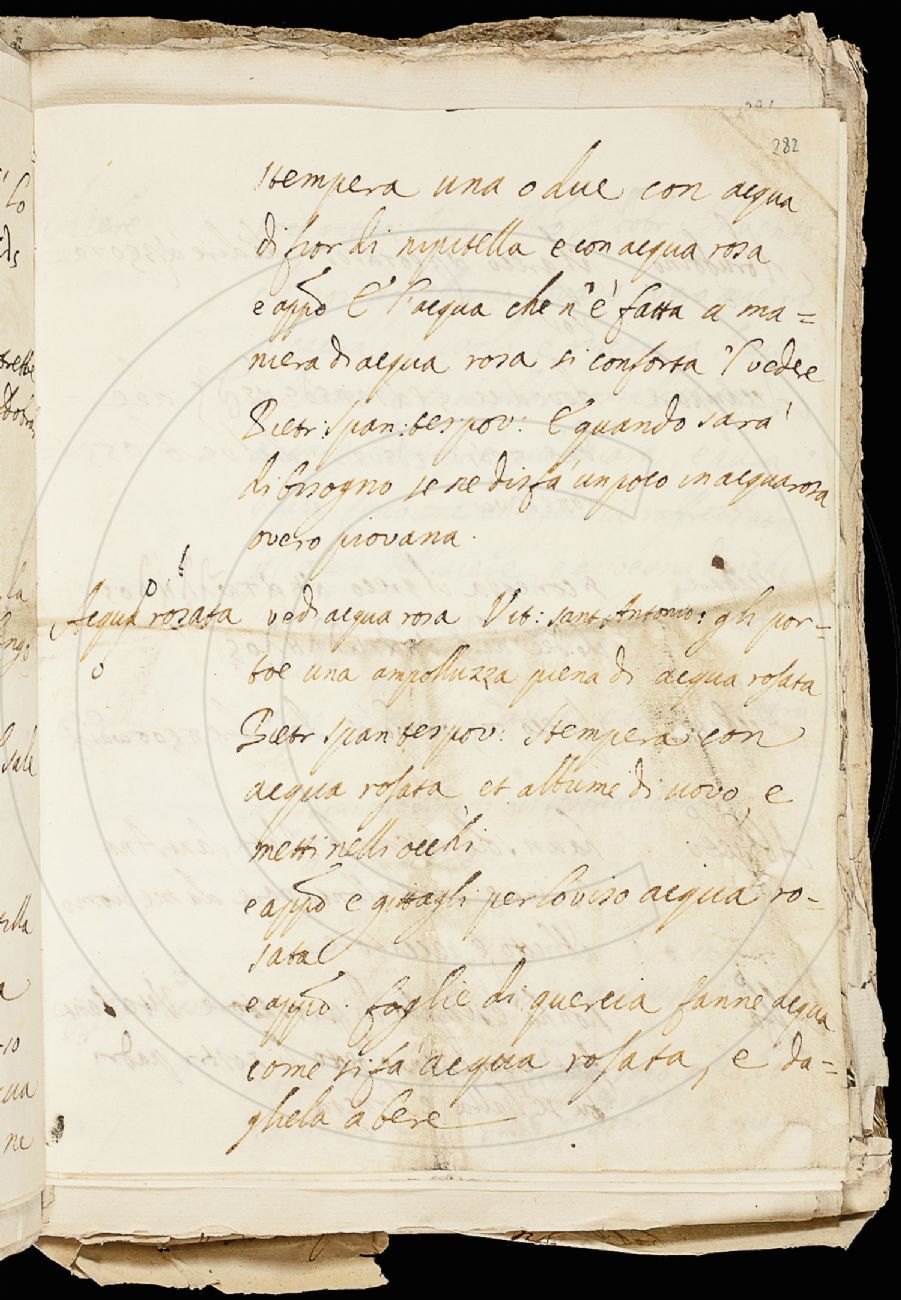 282
stempera una o due con acqua
di fior di nipitella e con acqua rosa
e app̃o E l'acqua che n'è fatta a ma=
niera di acqua rosa si conforta 'l vedere
Pietr: span: tes pov: E quando sarà
di bisogno se ne disfà un poco in acqua rosa
overo piovana.
Acqua rosata vedi acqua rosa Vit: sant. Antonio: gli por=
toe una ampolluzza piena di acqua rosata
Pietr span tes pov: stempera con
acqua rosata et albume di uovo, e
metti nelli occhi
e app̃o e gittagli per lo viso acqua ro=
sata
e app̃o. foglie di quercia fanne acqua
come si fa acqua rosata, e da=
ghela a bere